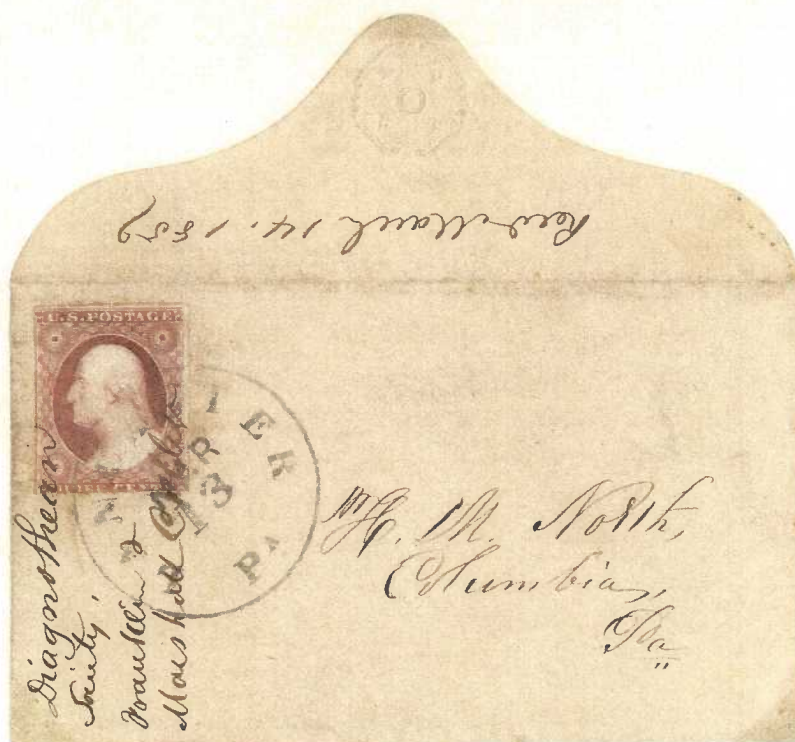 Recd March 14. 1859
U.S. POSTAGE
THREE CENTS
LANCASTER
MAR
13
PA
Mr H. M. North,
Columbia,
Pa
Diagnothean
Society,
Franklin &
Marshall College